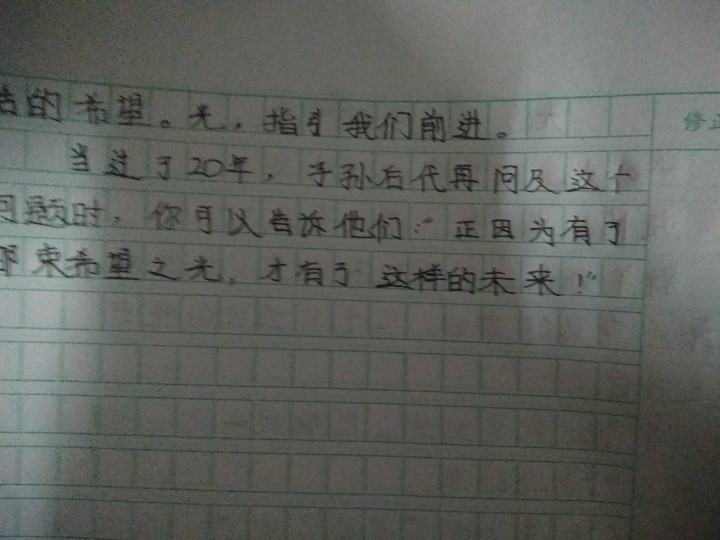 的希望。光，指引我们前进。
修正
当过了20年，子孙后代再问及这个
问题时，你可以告诉他们：“正因为有了
那束希望之光，才有了这样的未来！”